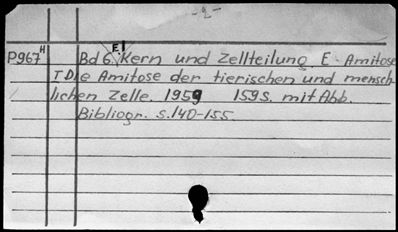 -2-
P967H Bd 6. E1 Kern und Zellteilung. E - Amitose
T Die Amitose der tierischen und mensch-
lichen Zelle. 1959 159 S. mit Abb.
Bibliogr. S. 140-155.